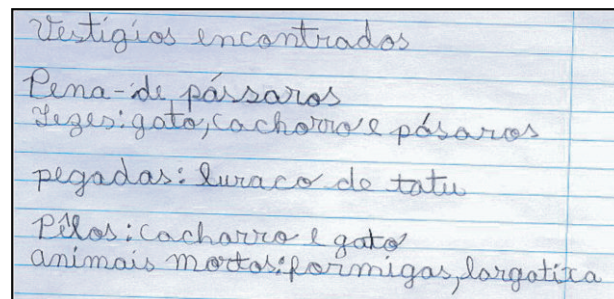 Vestígios encontrados
Pena-de pássaros
Fezes: gato, cachorro e pásaros
pegadas: buraco de tatu
Pêlos: cacharro e gato
animais mortos: formigas, largatixa